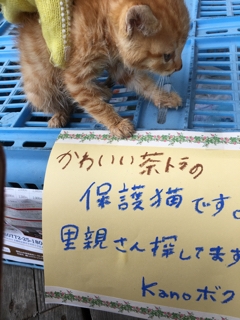 かわいい茶トラの
保護猫です。
里親さん探してます
Kanoボク